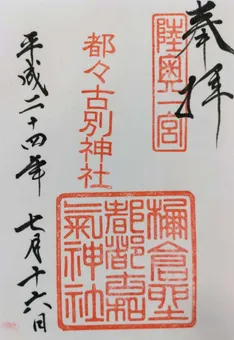 奉拝
陸奥一宮
都々古別神社
棚倉聖
都都古和
氣神社
平成二十四年 七月十六日